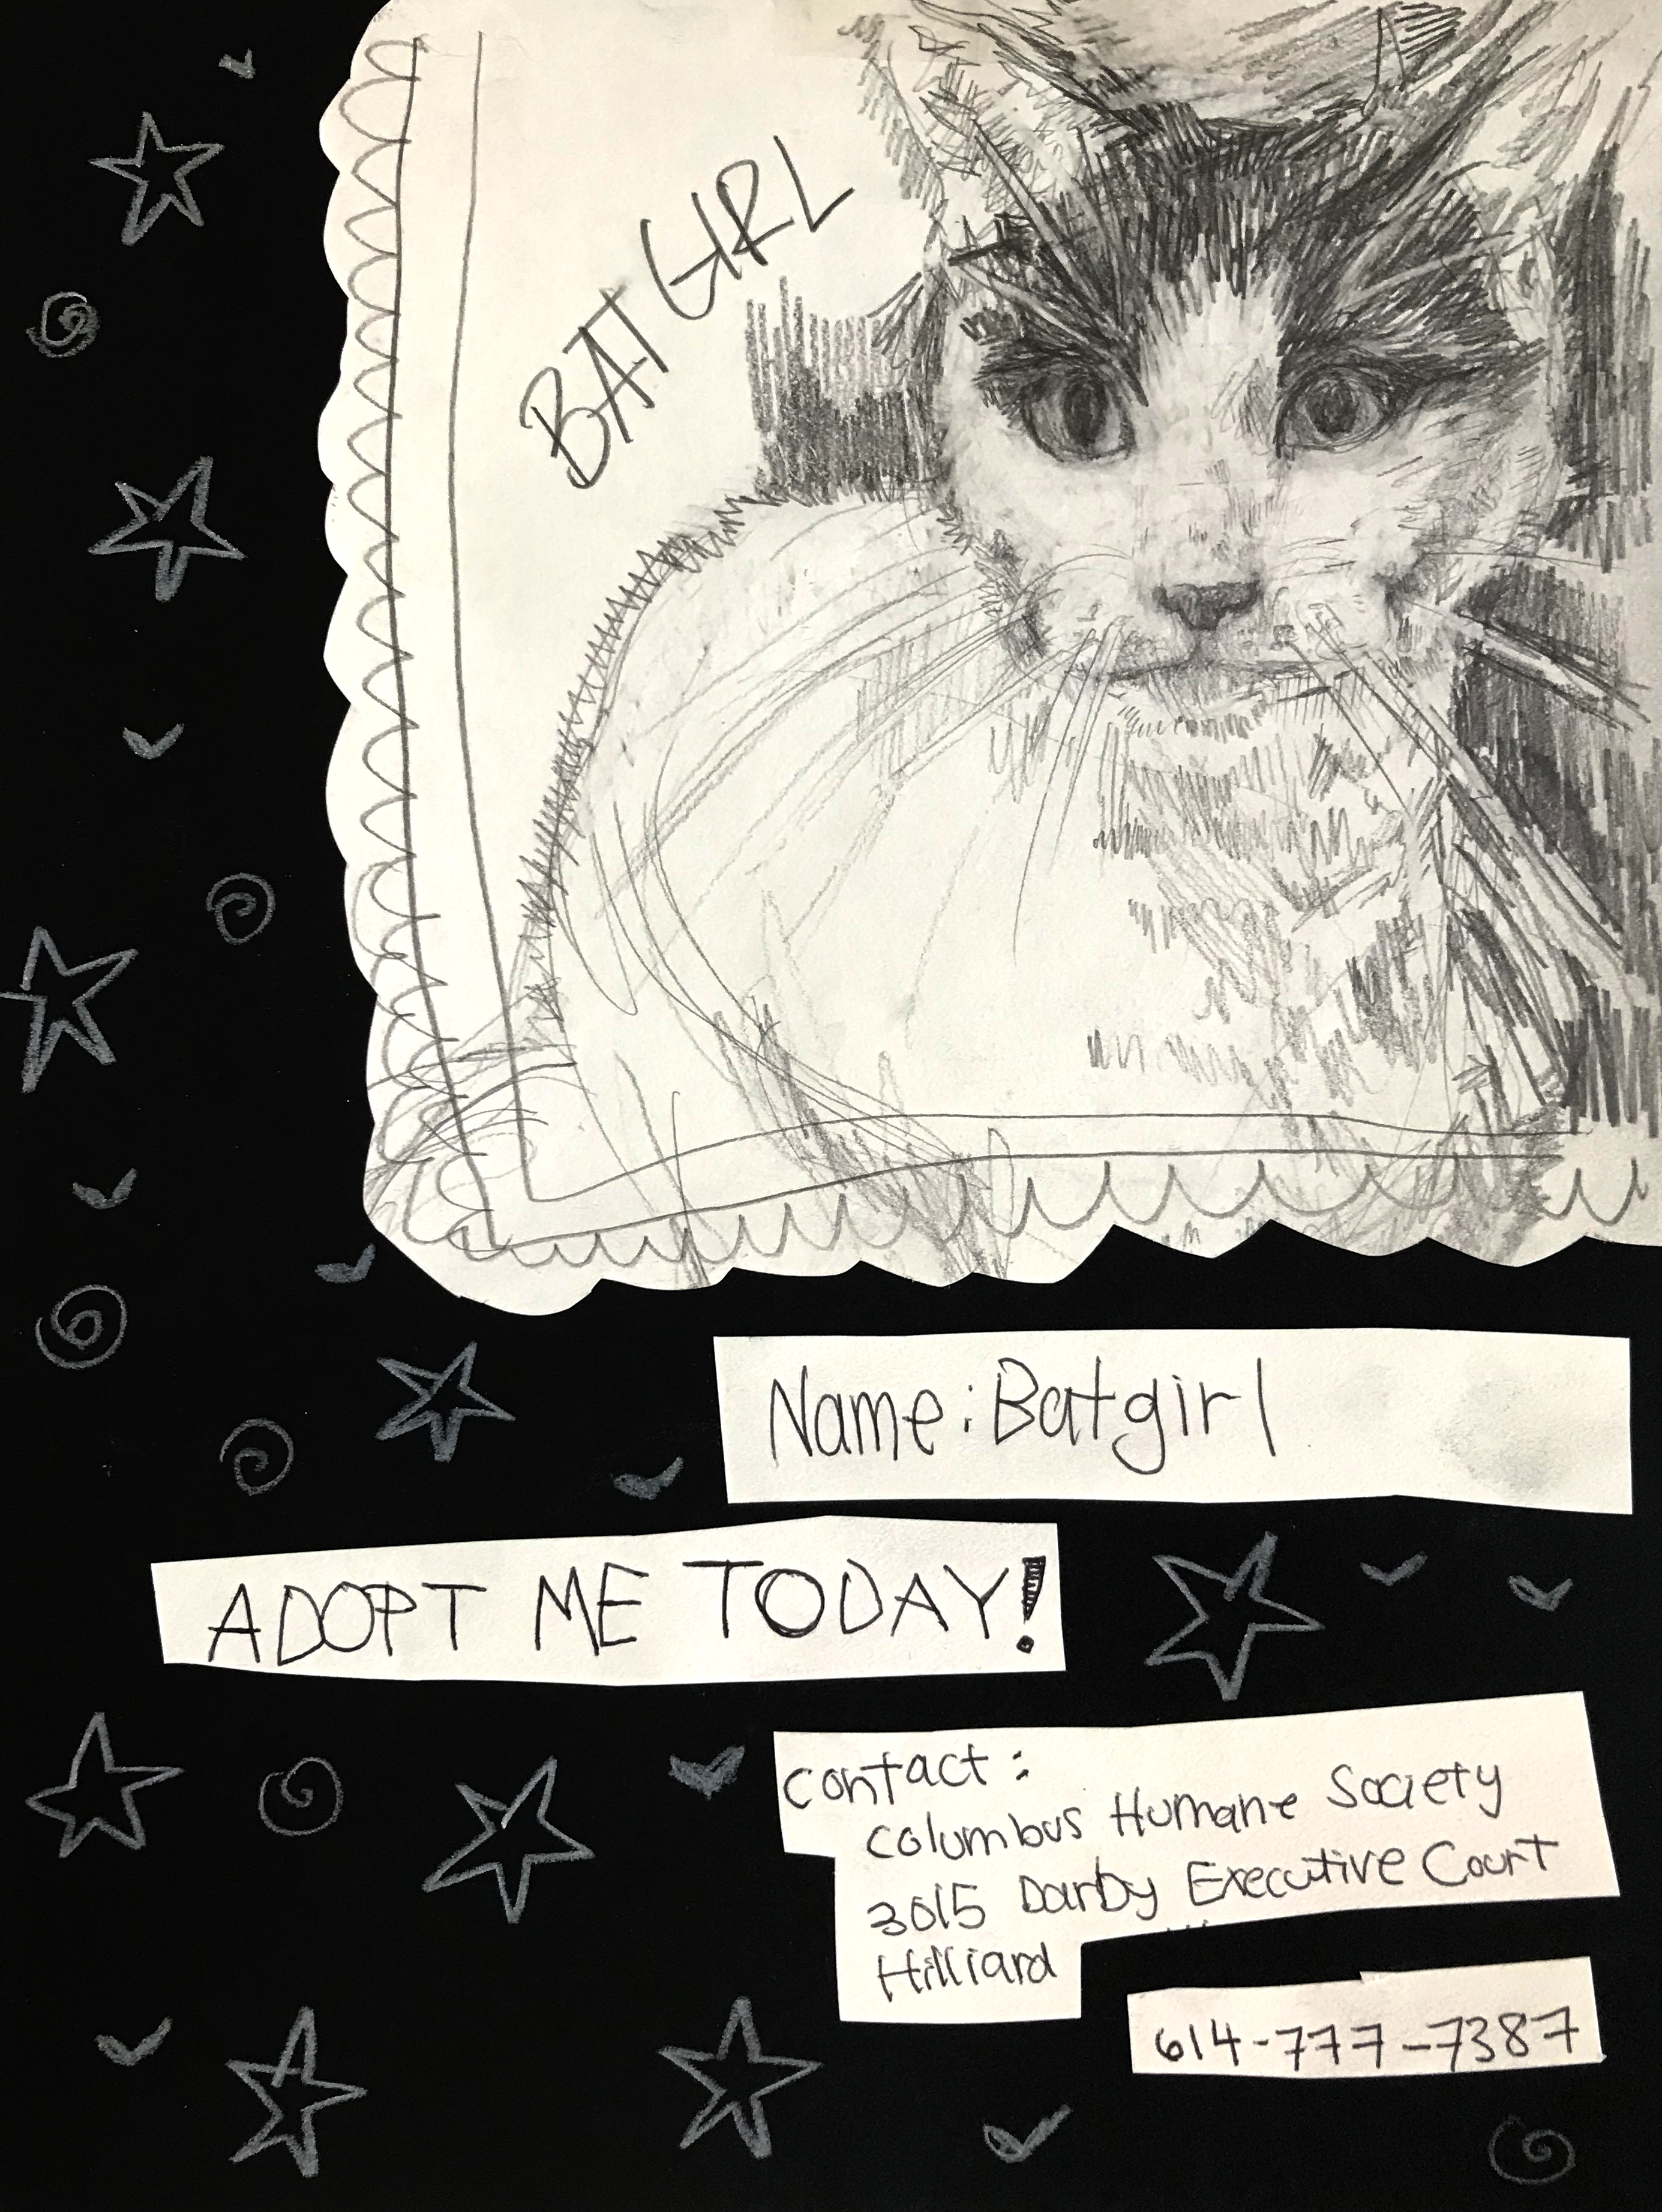 BAT GIRL
Name: Batgirl
ADOPT ME TODAY!
Contact:
Columbus Humane Society
3015 Darby Executive Court
Hilliard
614-777-7387